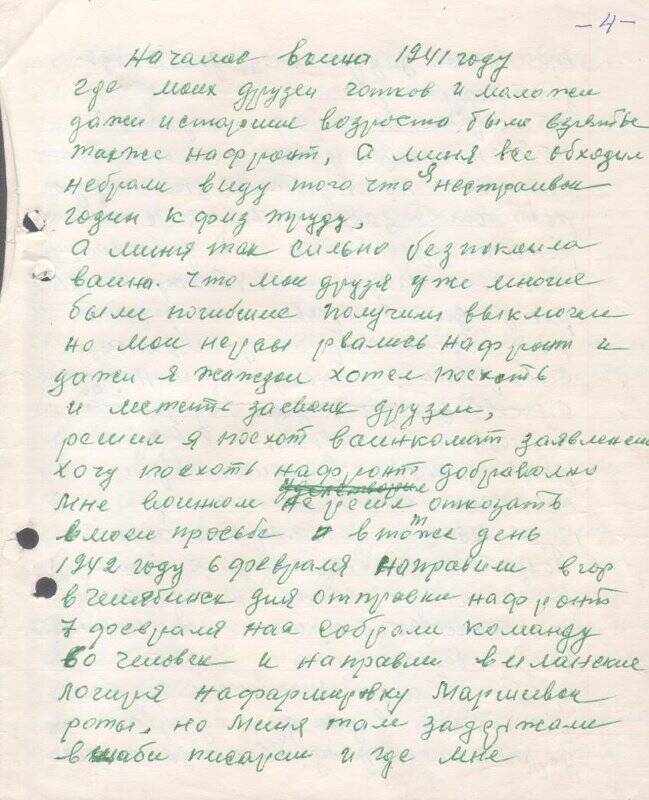 -4-
Началас выина 1941 году
где моих друзей годков и моложи
дажи и старшие возроста были взяты
также нафронт, А миня все обходил
небрали виду того что я нестраивой
годин к физ труду,
А миня так сильно безпокоила
ваина. что мои друзя уже многие
были погибшие получили
но мои нервы рвались нафронт и
дажи я жаждой хотел поехоть
и мстить засвоих друзей,
решил я поехот ваинкомат заявлением
хочу поехоть нафронт добраволно
мне воинком не решил откозать
вмоей просьбе в тотже день
1942 году 6 февраля направили в гор
в Челябинск для отправки нафронт
7 февраля нас собрали команду
60 человек и направли в
логиря нафармировку Маршевой
роты, но миня там задержали
в писарем и где мне